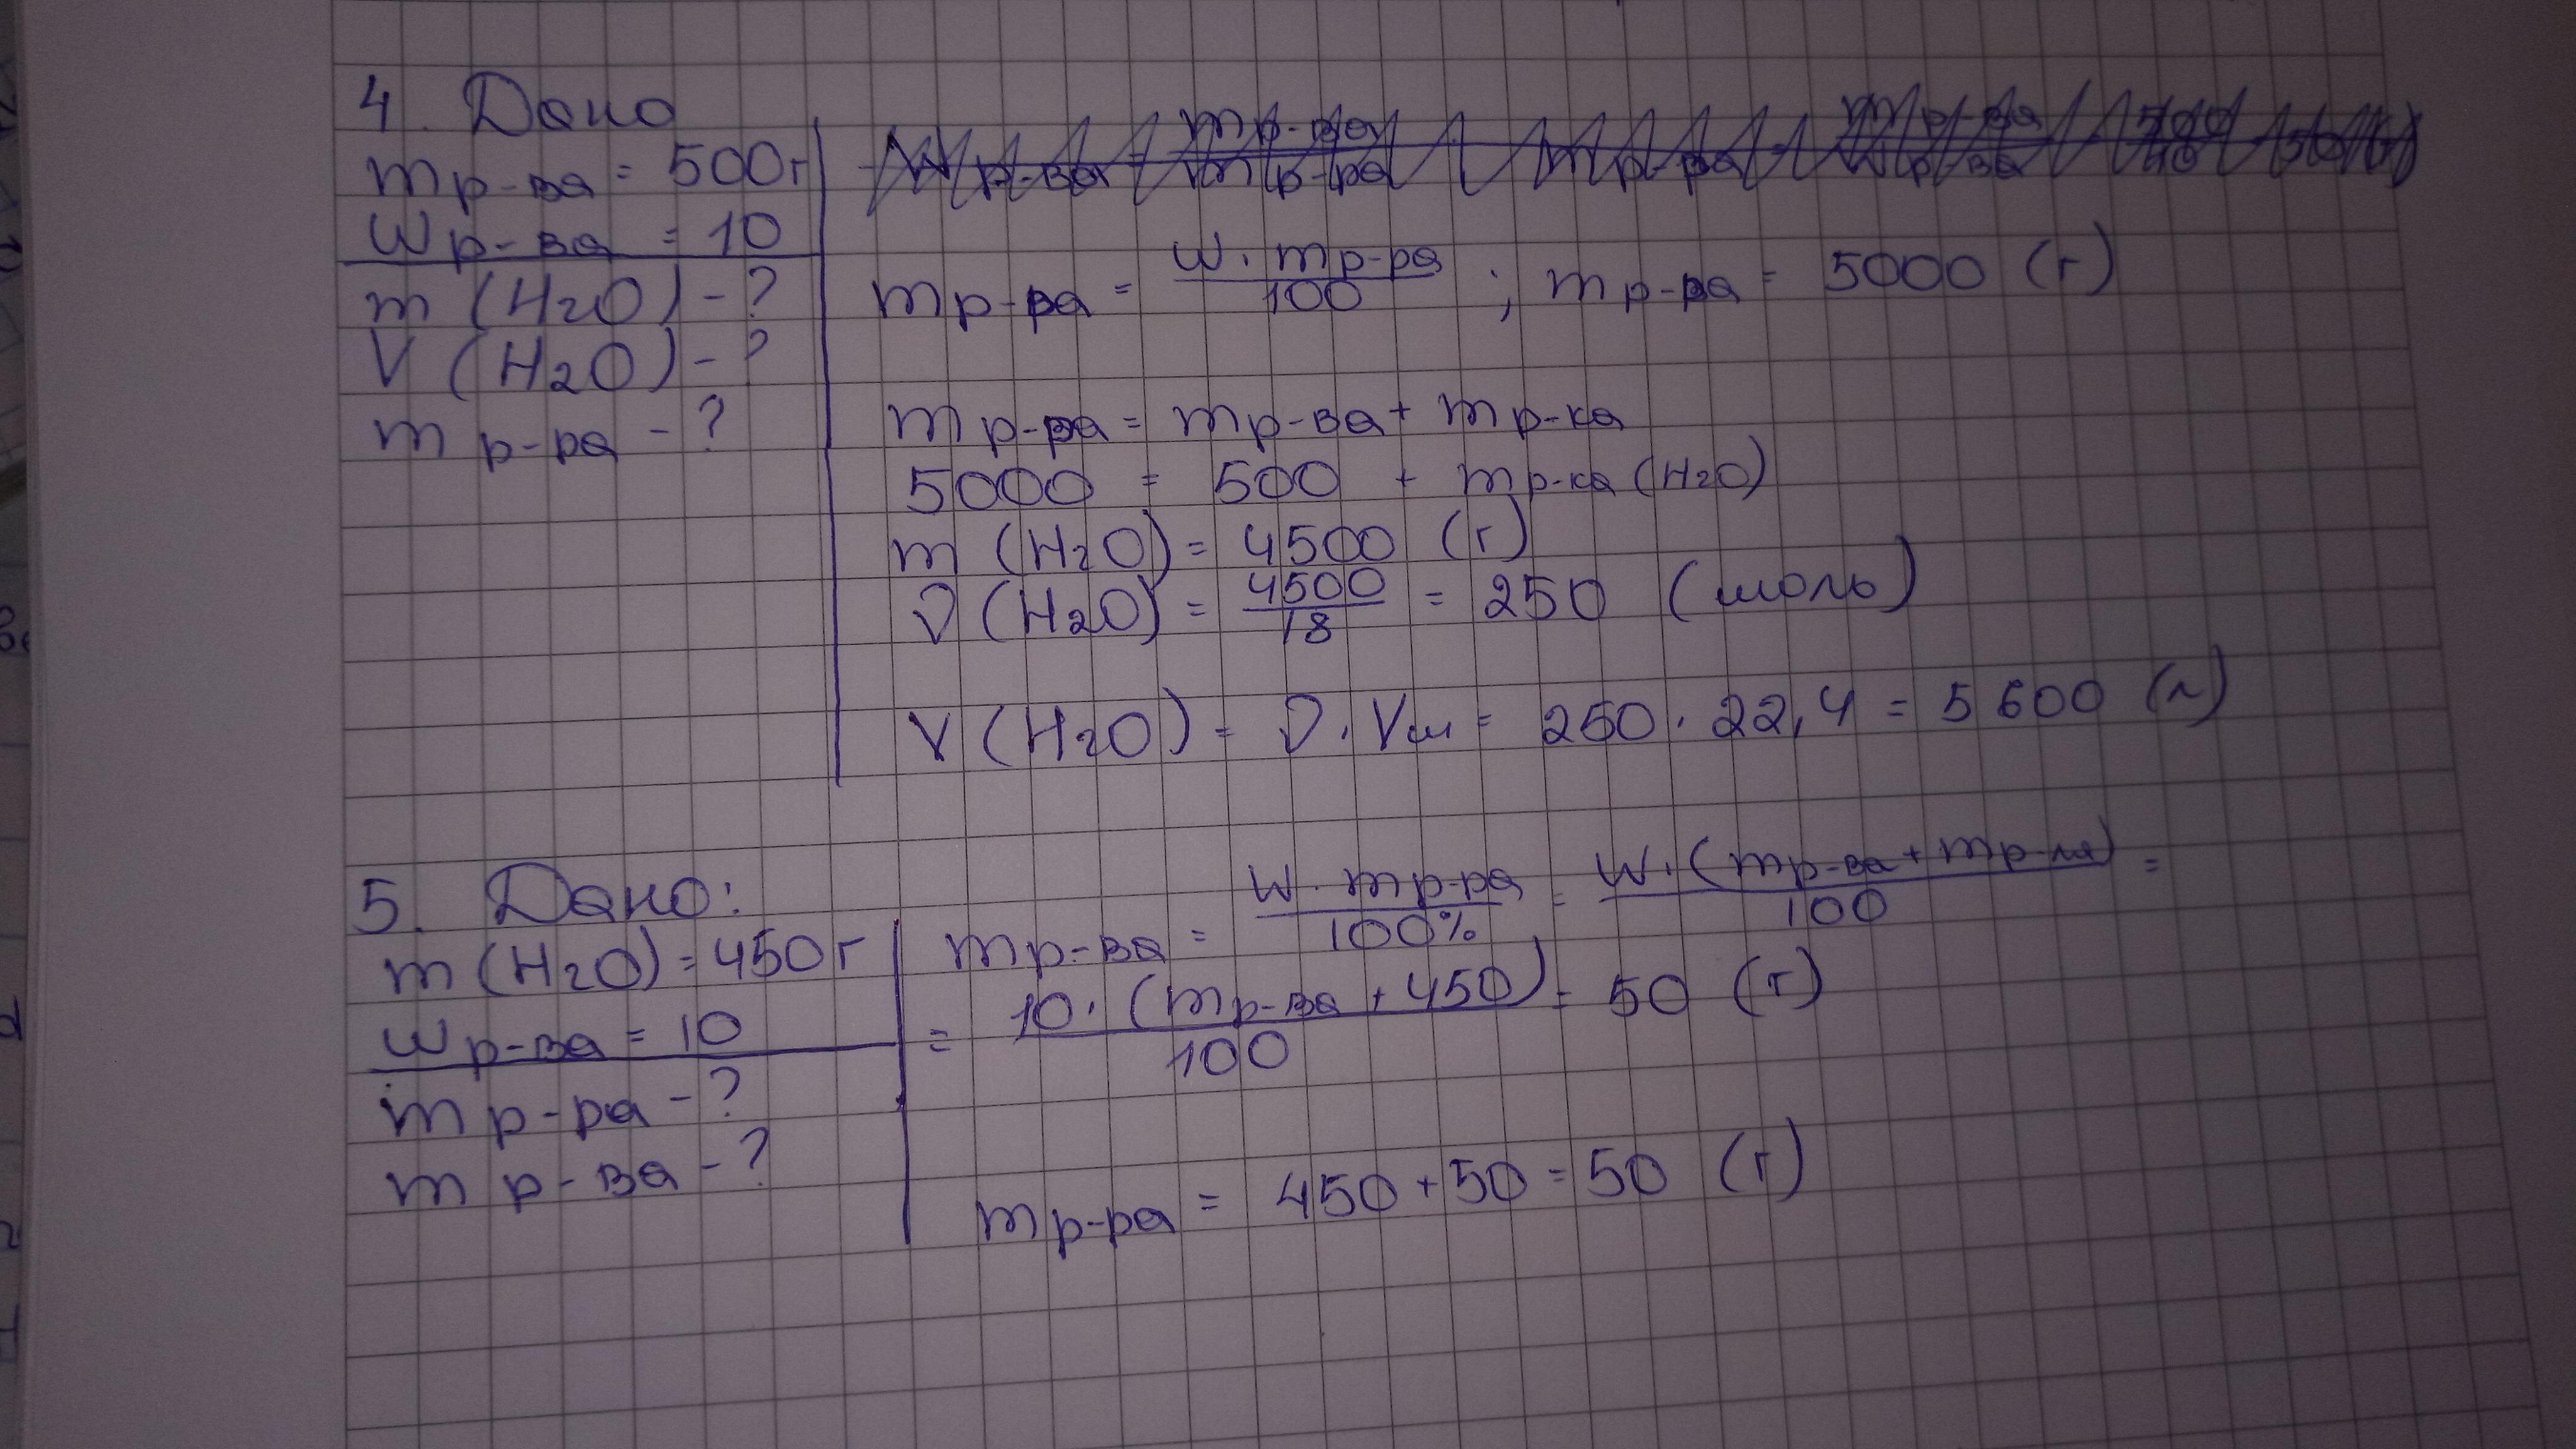 4. Дано
mр-ва = 500г
Wр-ва = 10
m (H2O) - ?
V (H2O) - ?
m р-ра - ?
Wр-ва = mр-ва / mр-ра
mр-ра = W · mр-ра / 100 ; mр-ра = 5000 (г)
mр-ра = mр-ва + mр-ка
5000 = 500 + mр-ка (H2O)
m (H2O) = 4500 (г)
ν (H2O) = 4500 / 18 = 250 (моль)
V (H2O) = ν · Vм = 250 · 22,4 = 5600 (л)
5. Дано:
m (H2O) = 450 г
Wр-ва = 10
m р-ра - ?
m р-ва - ?
mр-ва = W · mр-ра / 100% = W · (mр-ва + mр-ля) / 100 =
= 10 · (mр-ва + 450) / 100 = 50 (г)
mр-ра = 450 + 50 = 50 (г)